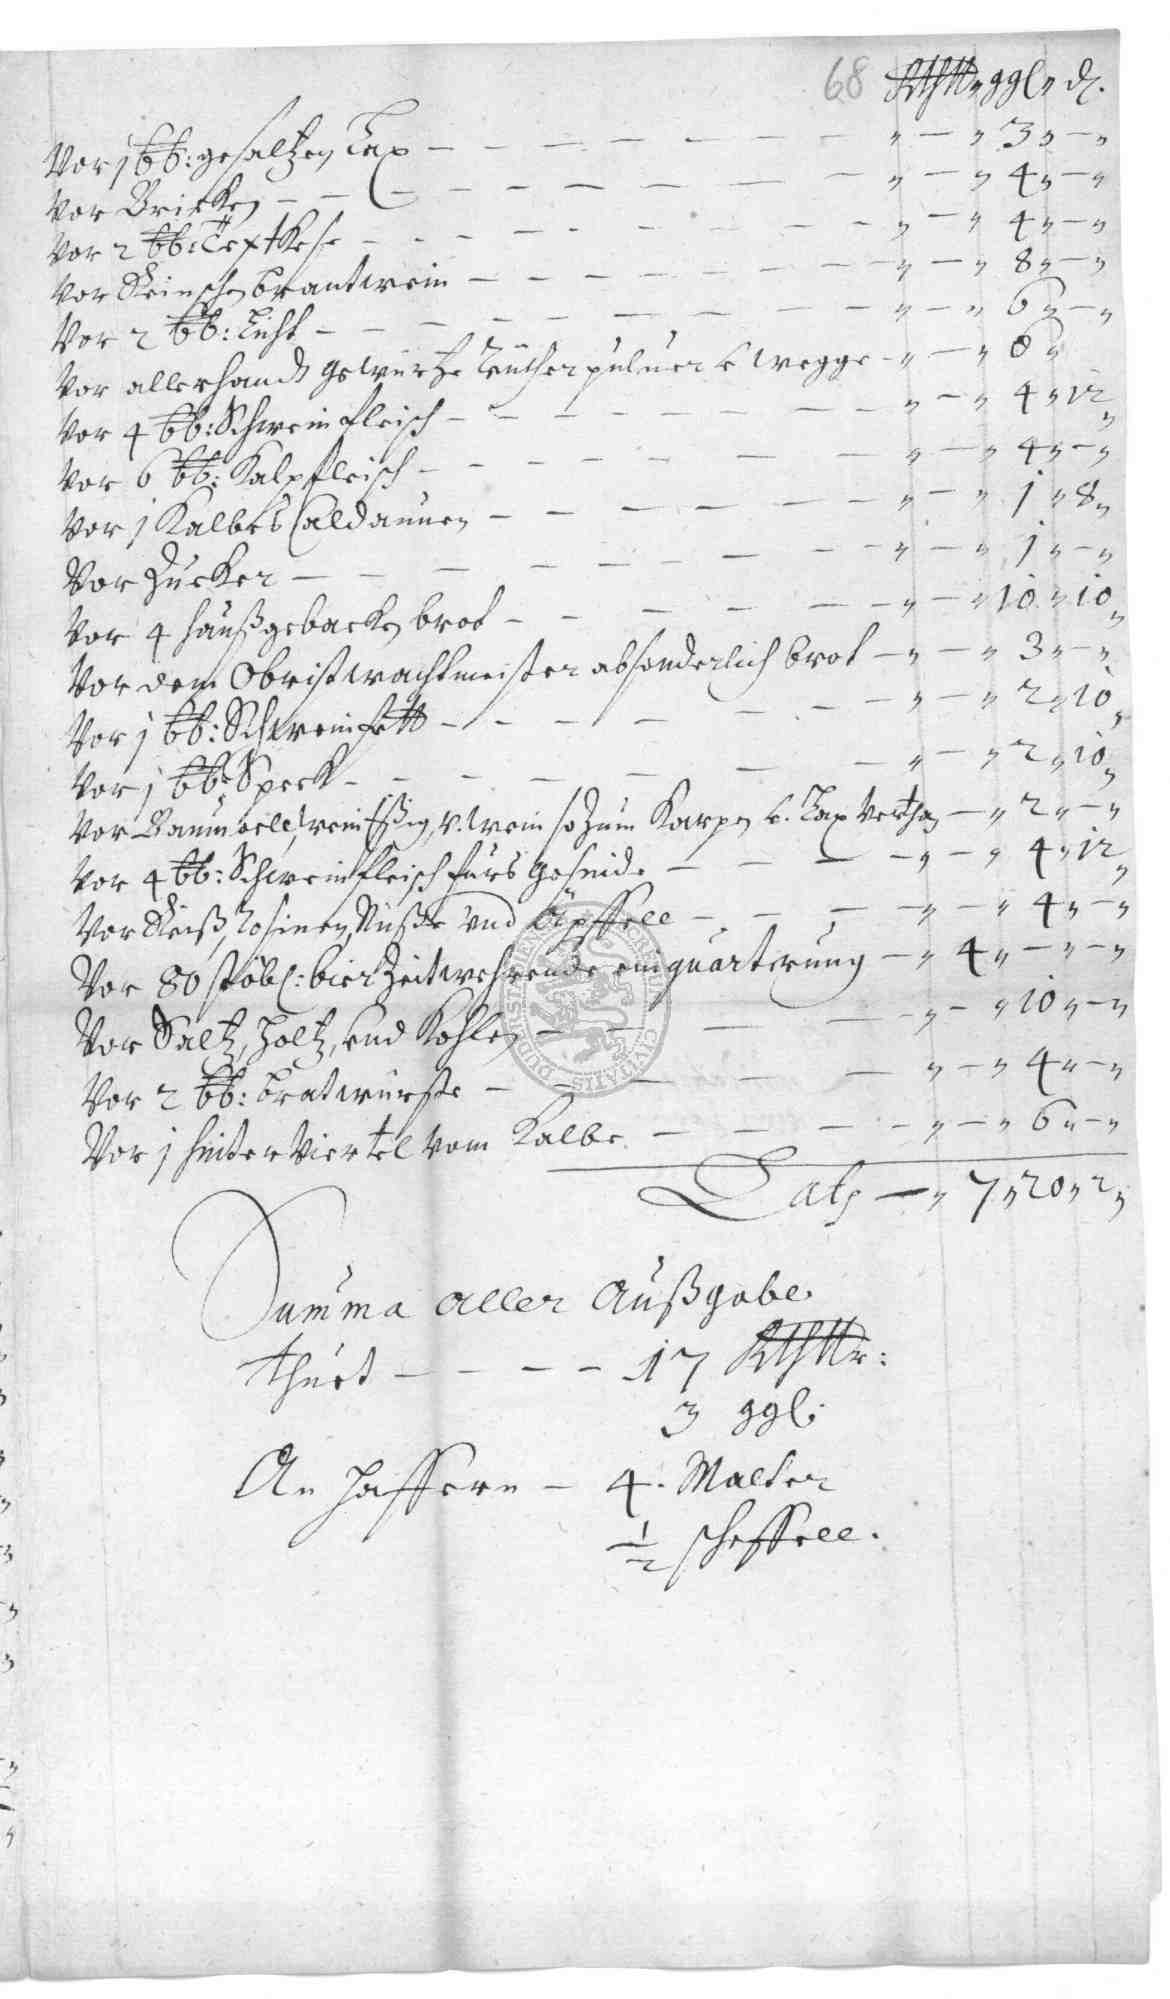 68 Rthll„ ggl„ d.
Vor 1 ℔: gesaltzen Lax - - - „ - „ 3„ - „
Vor Bricken - - - „ - „ 4„ - „
Vor 2 ℔: Textkese - - - „ - „ 4„ - „
Vor Reinschen brantwein - - - „ - „ 8„ - „
Vor 2 ℔: Licht - - - „ - „ 6„ - „
Vor allerhandt gewürtze pulver wegge - „ - „ 6„
Vor 4 ℔: Schweinfleisch - - - „ - „ 4„ 12„
Vor 6 ℔: Kalpfleisch - - - „ - „ 4„ - „
Vor 1 Kalbes Caldaunen - - - „ - „ 1„ 8„
Vor Zucker - - - „ - „ 1„ - „
Vor 4 haußgebacken brot - - - „ - „ 10„ 10„
Vor dem Obristwachtmeister absonderlich brot - „ - „ 3„ - „
Vor 1 ℔: Schweinfett - - - „ - „ 2„ 10„
Vor 1 ℔: Speck - - - „ - „ 2„ 10„
Vor Baumoell, wein Eßig, v. wein so zum Karpen Lax verthan - „ 2„ - „
Vor 4 ℔: Schweinfleisch fürs gesinde - - - „ - „ 4„ 12„
Vor Reiß, rosinen, Nuße und Äpffell - - - „ - „ 4„ - „
Vor 80 stöbl: bier Zeitwehrende einquarterung - „ 4„ - „ - „
Vor Saltz, holtz, und Kohlen - - - „ - „ 10„ - „
Vor 2 ℔: bratwurste - - - „ - „ 4„ - „
Vor 1 hinter viertel vom Kalbe - - - „ - „ 6„ - „
Lats - „ 7„ 20„ 2„
Summa aller Außgabe
thuet - - - - 17 Rthllr:
3 ggl:
An haffern - 4. Malter
1/2 scheffell.